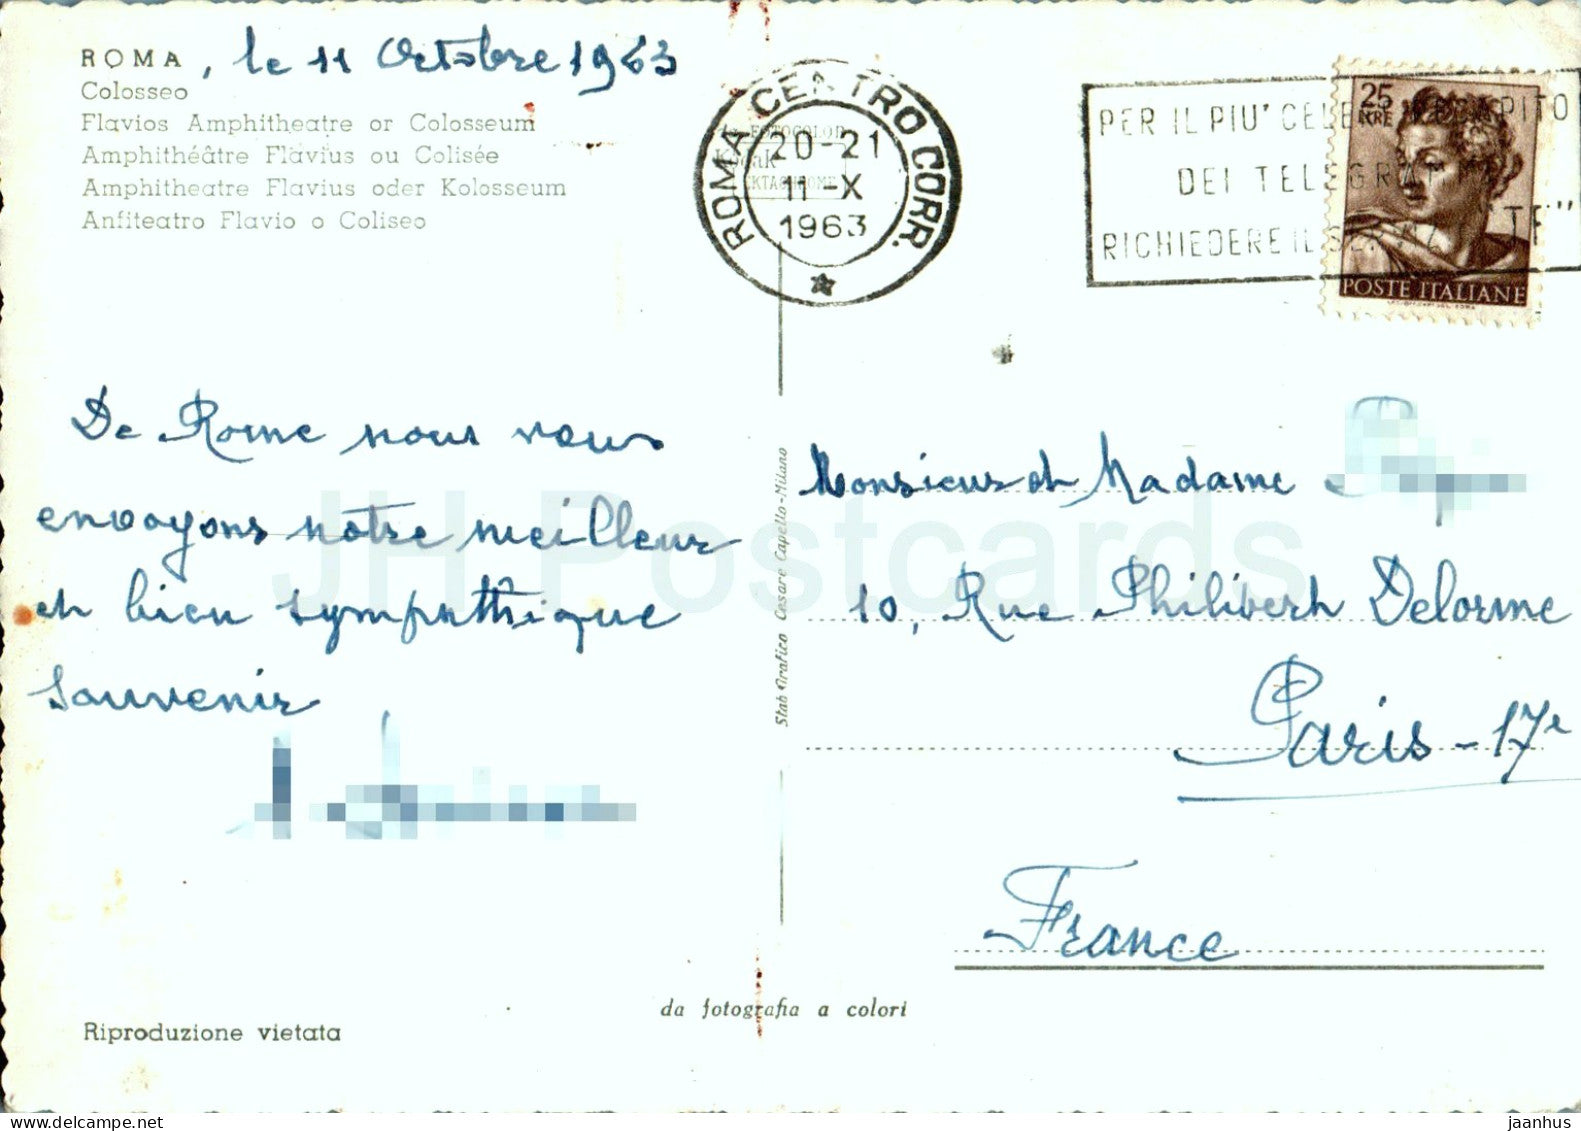 ROMA, le 11 Octobre 1963
Colosseo
Flavios Amphitheatre or Colosseum
Amphithéâtre Flavius ou Colisée
Amphitheatre Flavius oder Kolosseum
Anfiteatro Flavio o Coliseo
De Rome nous vous
envoyons notre meilleur
et bien sympathique
souvenir
Riproduzione vietata
da fotografia a colori
Stab Grafico Cesare Capello-Milano
ROMA CENTRO CORR.
20-21
11-X
1963
FOTOCOLOR
Kodak
EKTACHROME
PER IL PIU' CELE RECAPITO
DEI TELEGRAMMI
RICHIEDERE IL "TF"
25
LIRE
POSTE ITALIANE
Monsieur et Madame
10, Rue Philibert Delorme
Paris - 17e
France
JH Postcards
www.delcampe.net
jaanhus